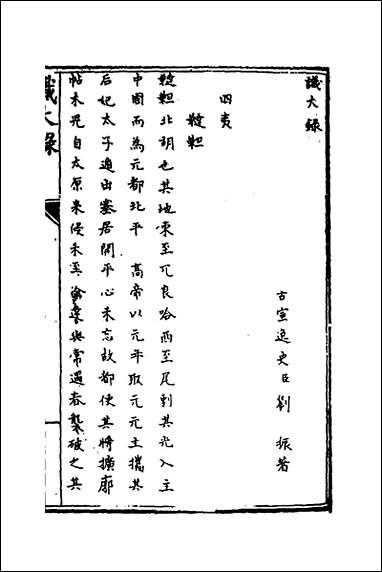 識大錄
古宣逸史臣劉 振著
四夷
韃靼
韃靼北胡也其地東至兀良哈西至瓦剌其先入主
中國而為元都北平 高帝以元年取元元主攜其
后妃太子遁出塞居開平心未忘故都使其將擴廓
帖木兒自太原來侵未至徐達與常遇春襲破之其
識大錄